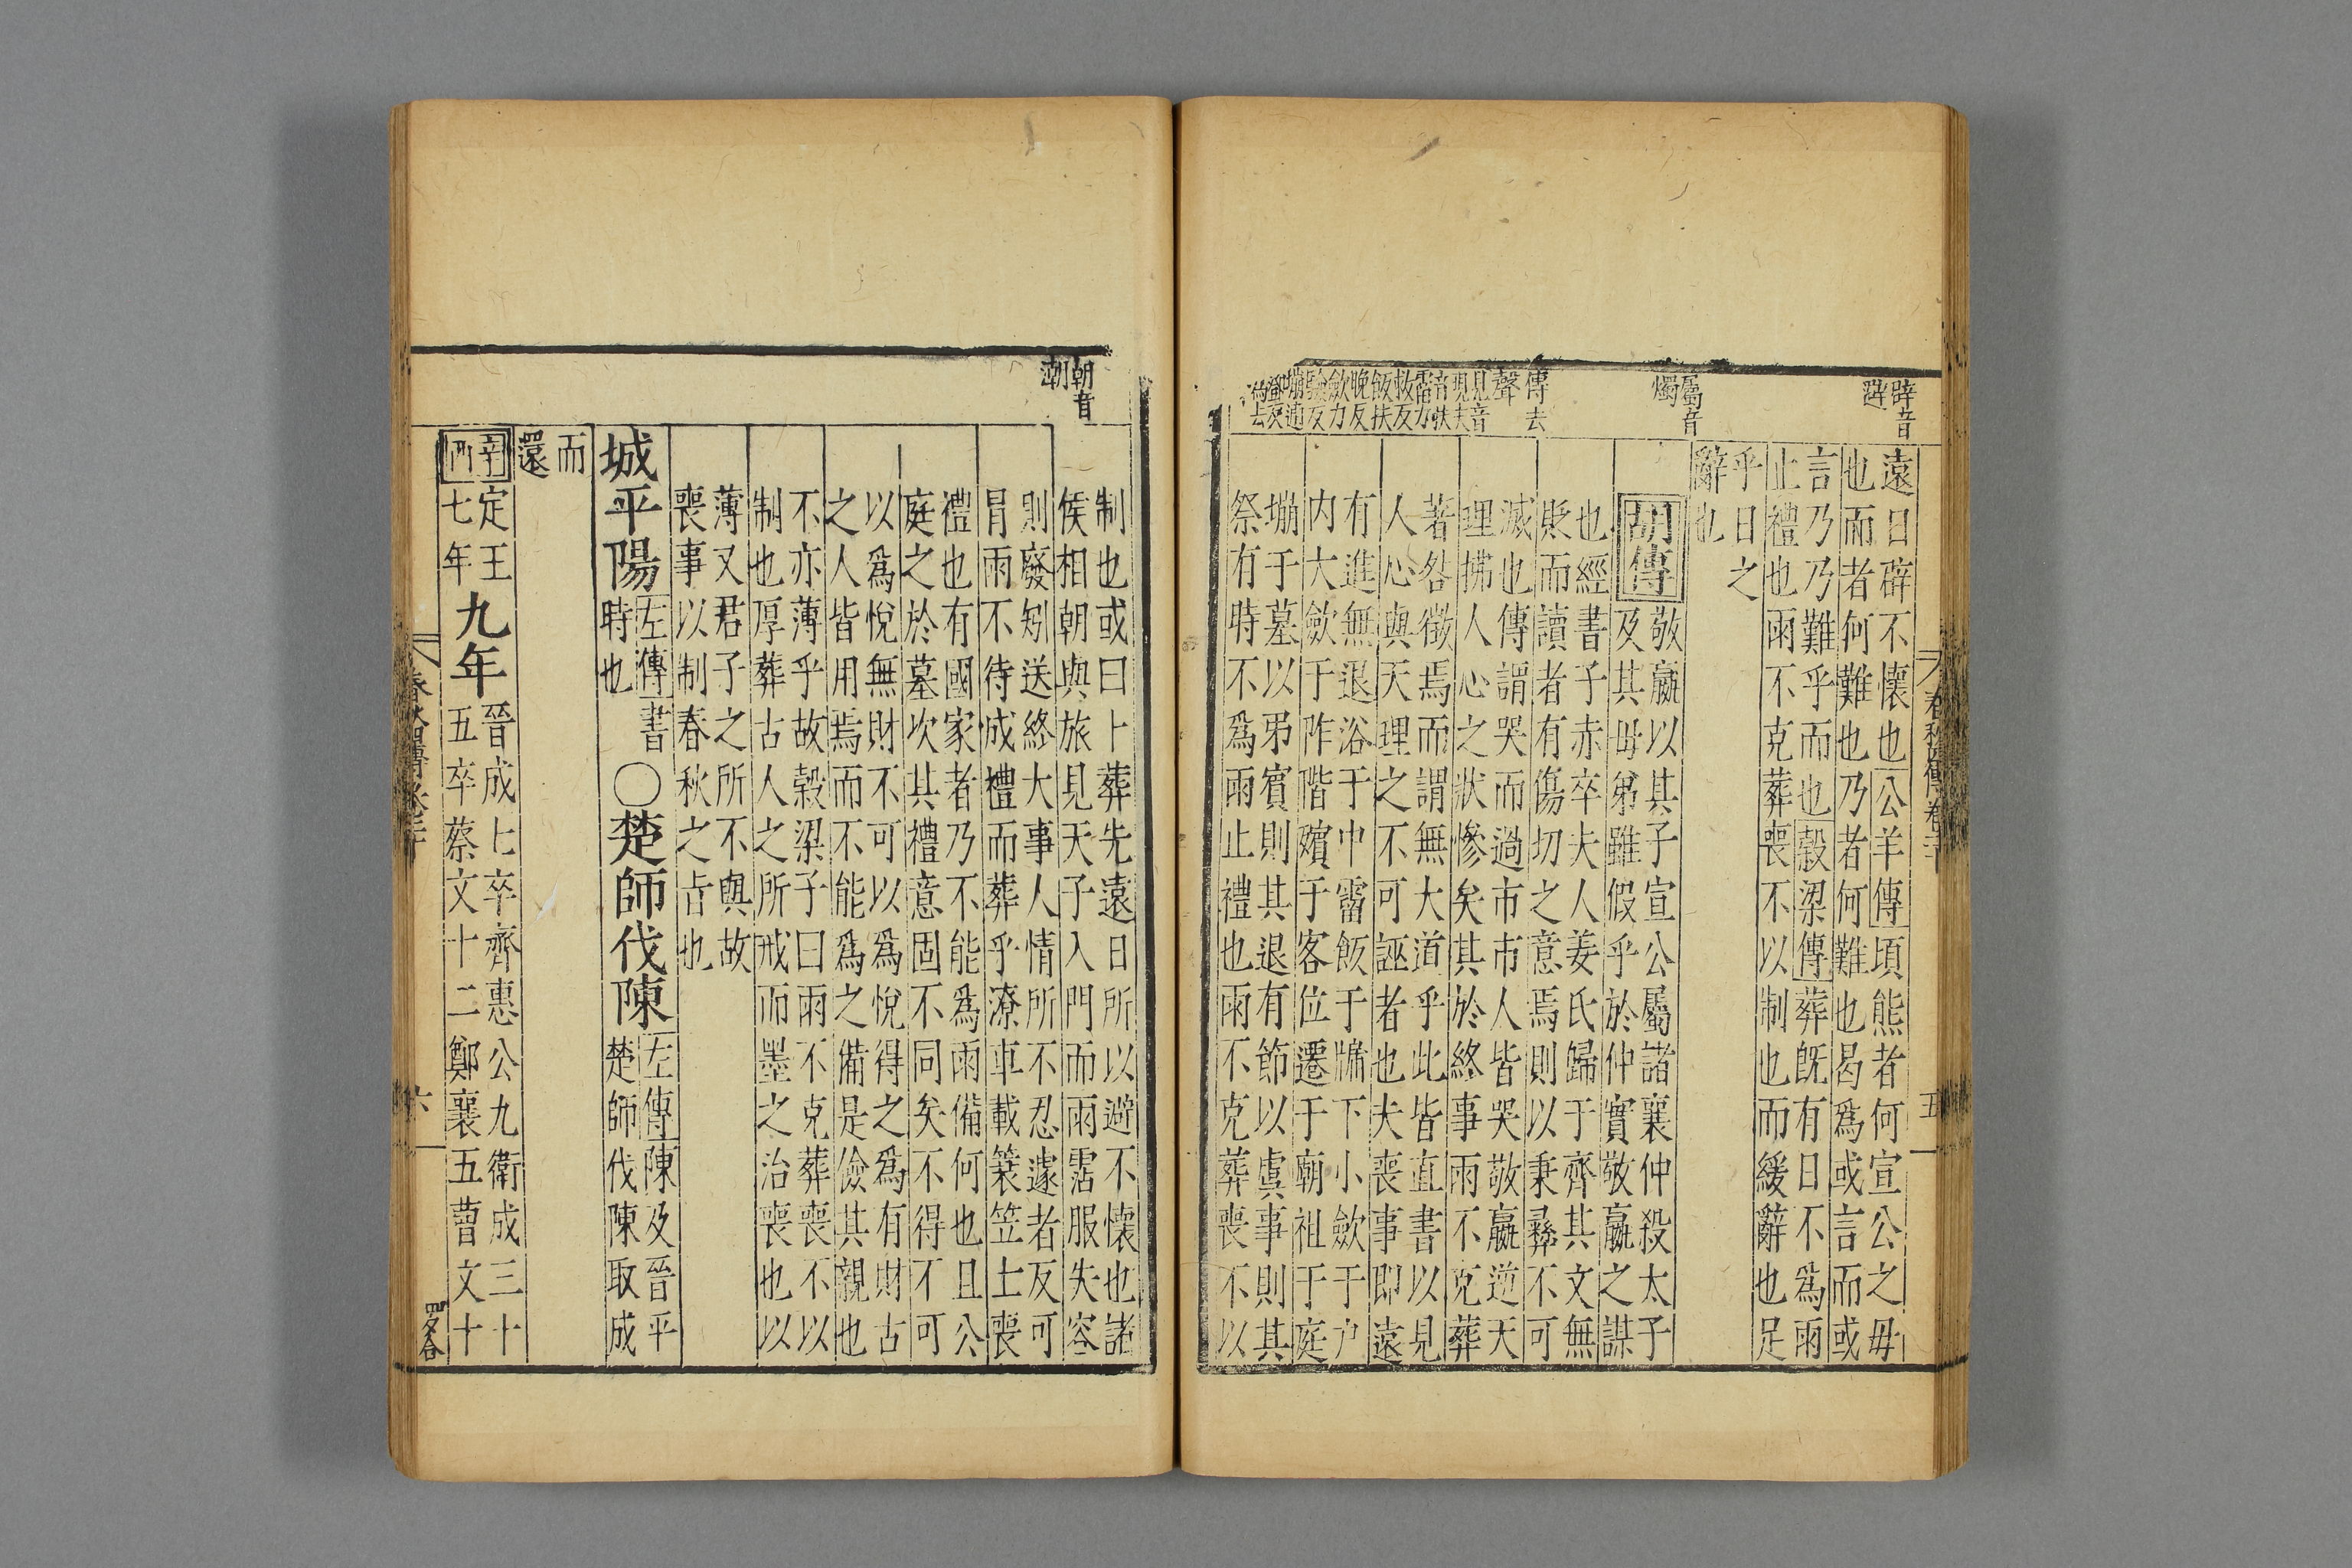 辟音
避
屬音
燭
傳去
聲
遠日辟不懷也公羊傳頃熊者何宣公之毋
也而者何難也乃者何難也曷爲或言而或
言乃乃難乎而也穀梁傳葬旣有日不爲雨
止禮也雨不克葬喪不以制也而緩辭也足
乎日之
辭也
胡傳
敬嬴以其子宣公屬諸襄仲殺太子
及其毋弟雖假乎於仲實敬嬴之謀
也經書子赤卒夫人姜氏歸于齊其文無
貶而讀者有傷切之意焉則以秉彝不可
滅也傳謂哭而過市市人皆哭敬嬴逆天
理拂人心之狀慘矣其於終事雨不克葬
著咎徵焉而謂無大道乎此皆直書以見
人心與天理之不可誣者也夫喪事即遠
有進無退浴于中霤飯于牖下小歛于户
内大歛于阼階殯于客位遷于廟祖于庭
塴于墓以弔賓則其退有節以虞事則其
祭有時不爲雨止禮也雨不克葬喪不以
春秋四傳卷二十
五
朝音
潮
制也或曰卜葬先遠日所以避不懷也諸
侯相朝與旅見天子入門而雨霑服失容
則廢矧送終大事人情所不忍遽者反可
冐雨不待成禮而葬乎潦車載簑笠士喪
禮也有國家者乃不能爲雨備何也且公
庭之於墓坎其禮意固不同矣不得不可
以爲悅無財不可以爲悅得之爲有財古
之人皆用焉而不能爲之備是儉其親也
不亦薄乎故穀梁子曰雨不克葬喪不以
制也厚葬古人之所戒而墨之治喪也以
薄又君子之所不與故
喪事以制春秋之㫖也
城平陽
左傳書
時也
○楚師伐陳
左傳陳及晉平
楚師伐陳取成
而
還
辛
酉
定王
七年
九年
晉成七卒齊惠公九衛成三十
五卒蔡文十二鄭襄五曹文十
春秋四傳卷二十
六